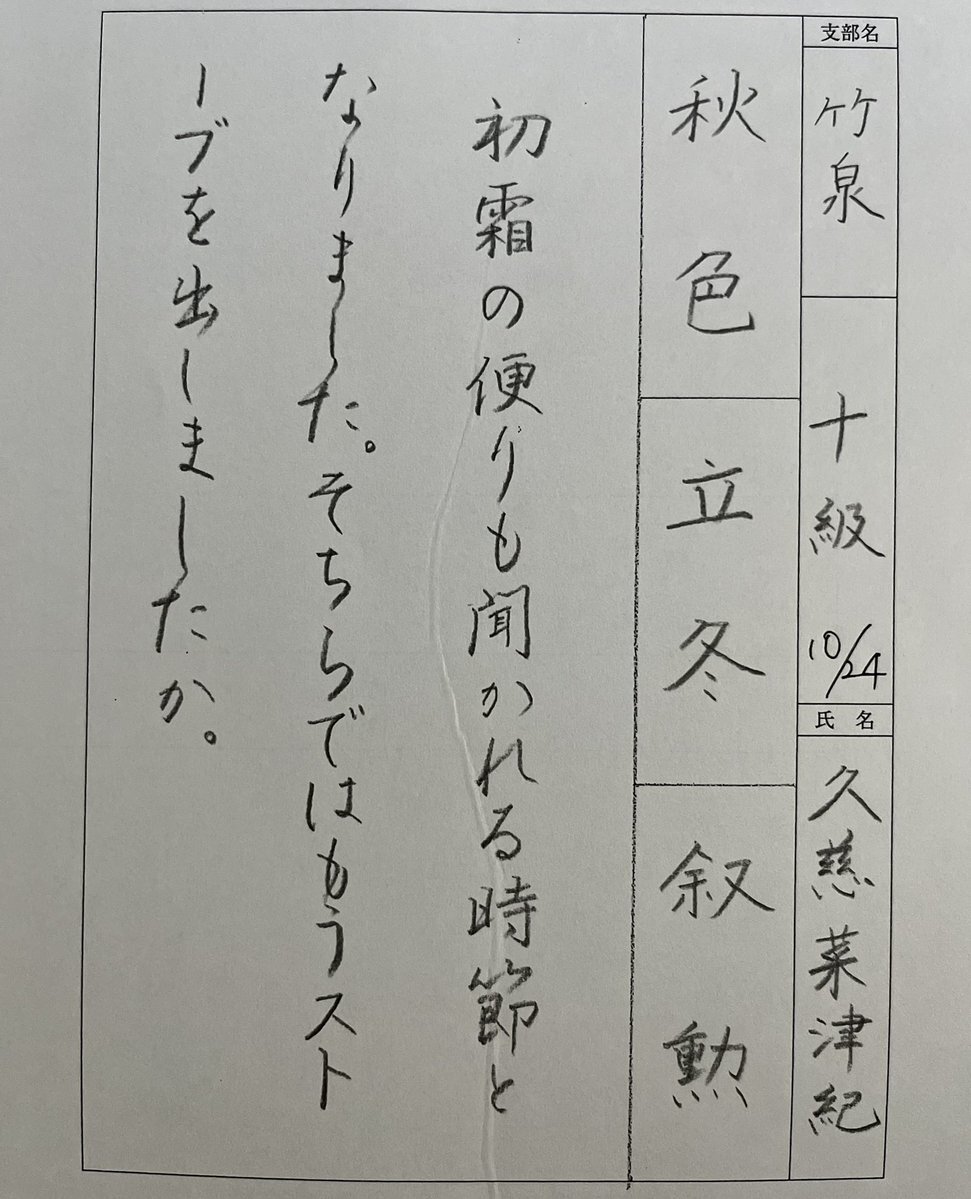 支部名
竹泉
十級 10/24
氏名
久慈菜津紀
秋色
立冬
叙勲
初霜の便りも聞かれる時節と
なりました。そちらではもうスト
ーブを出しましたか。